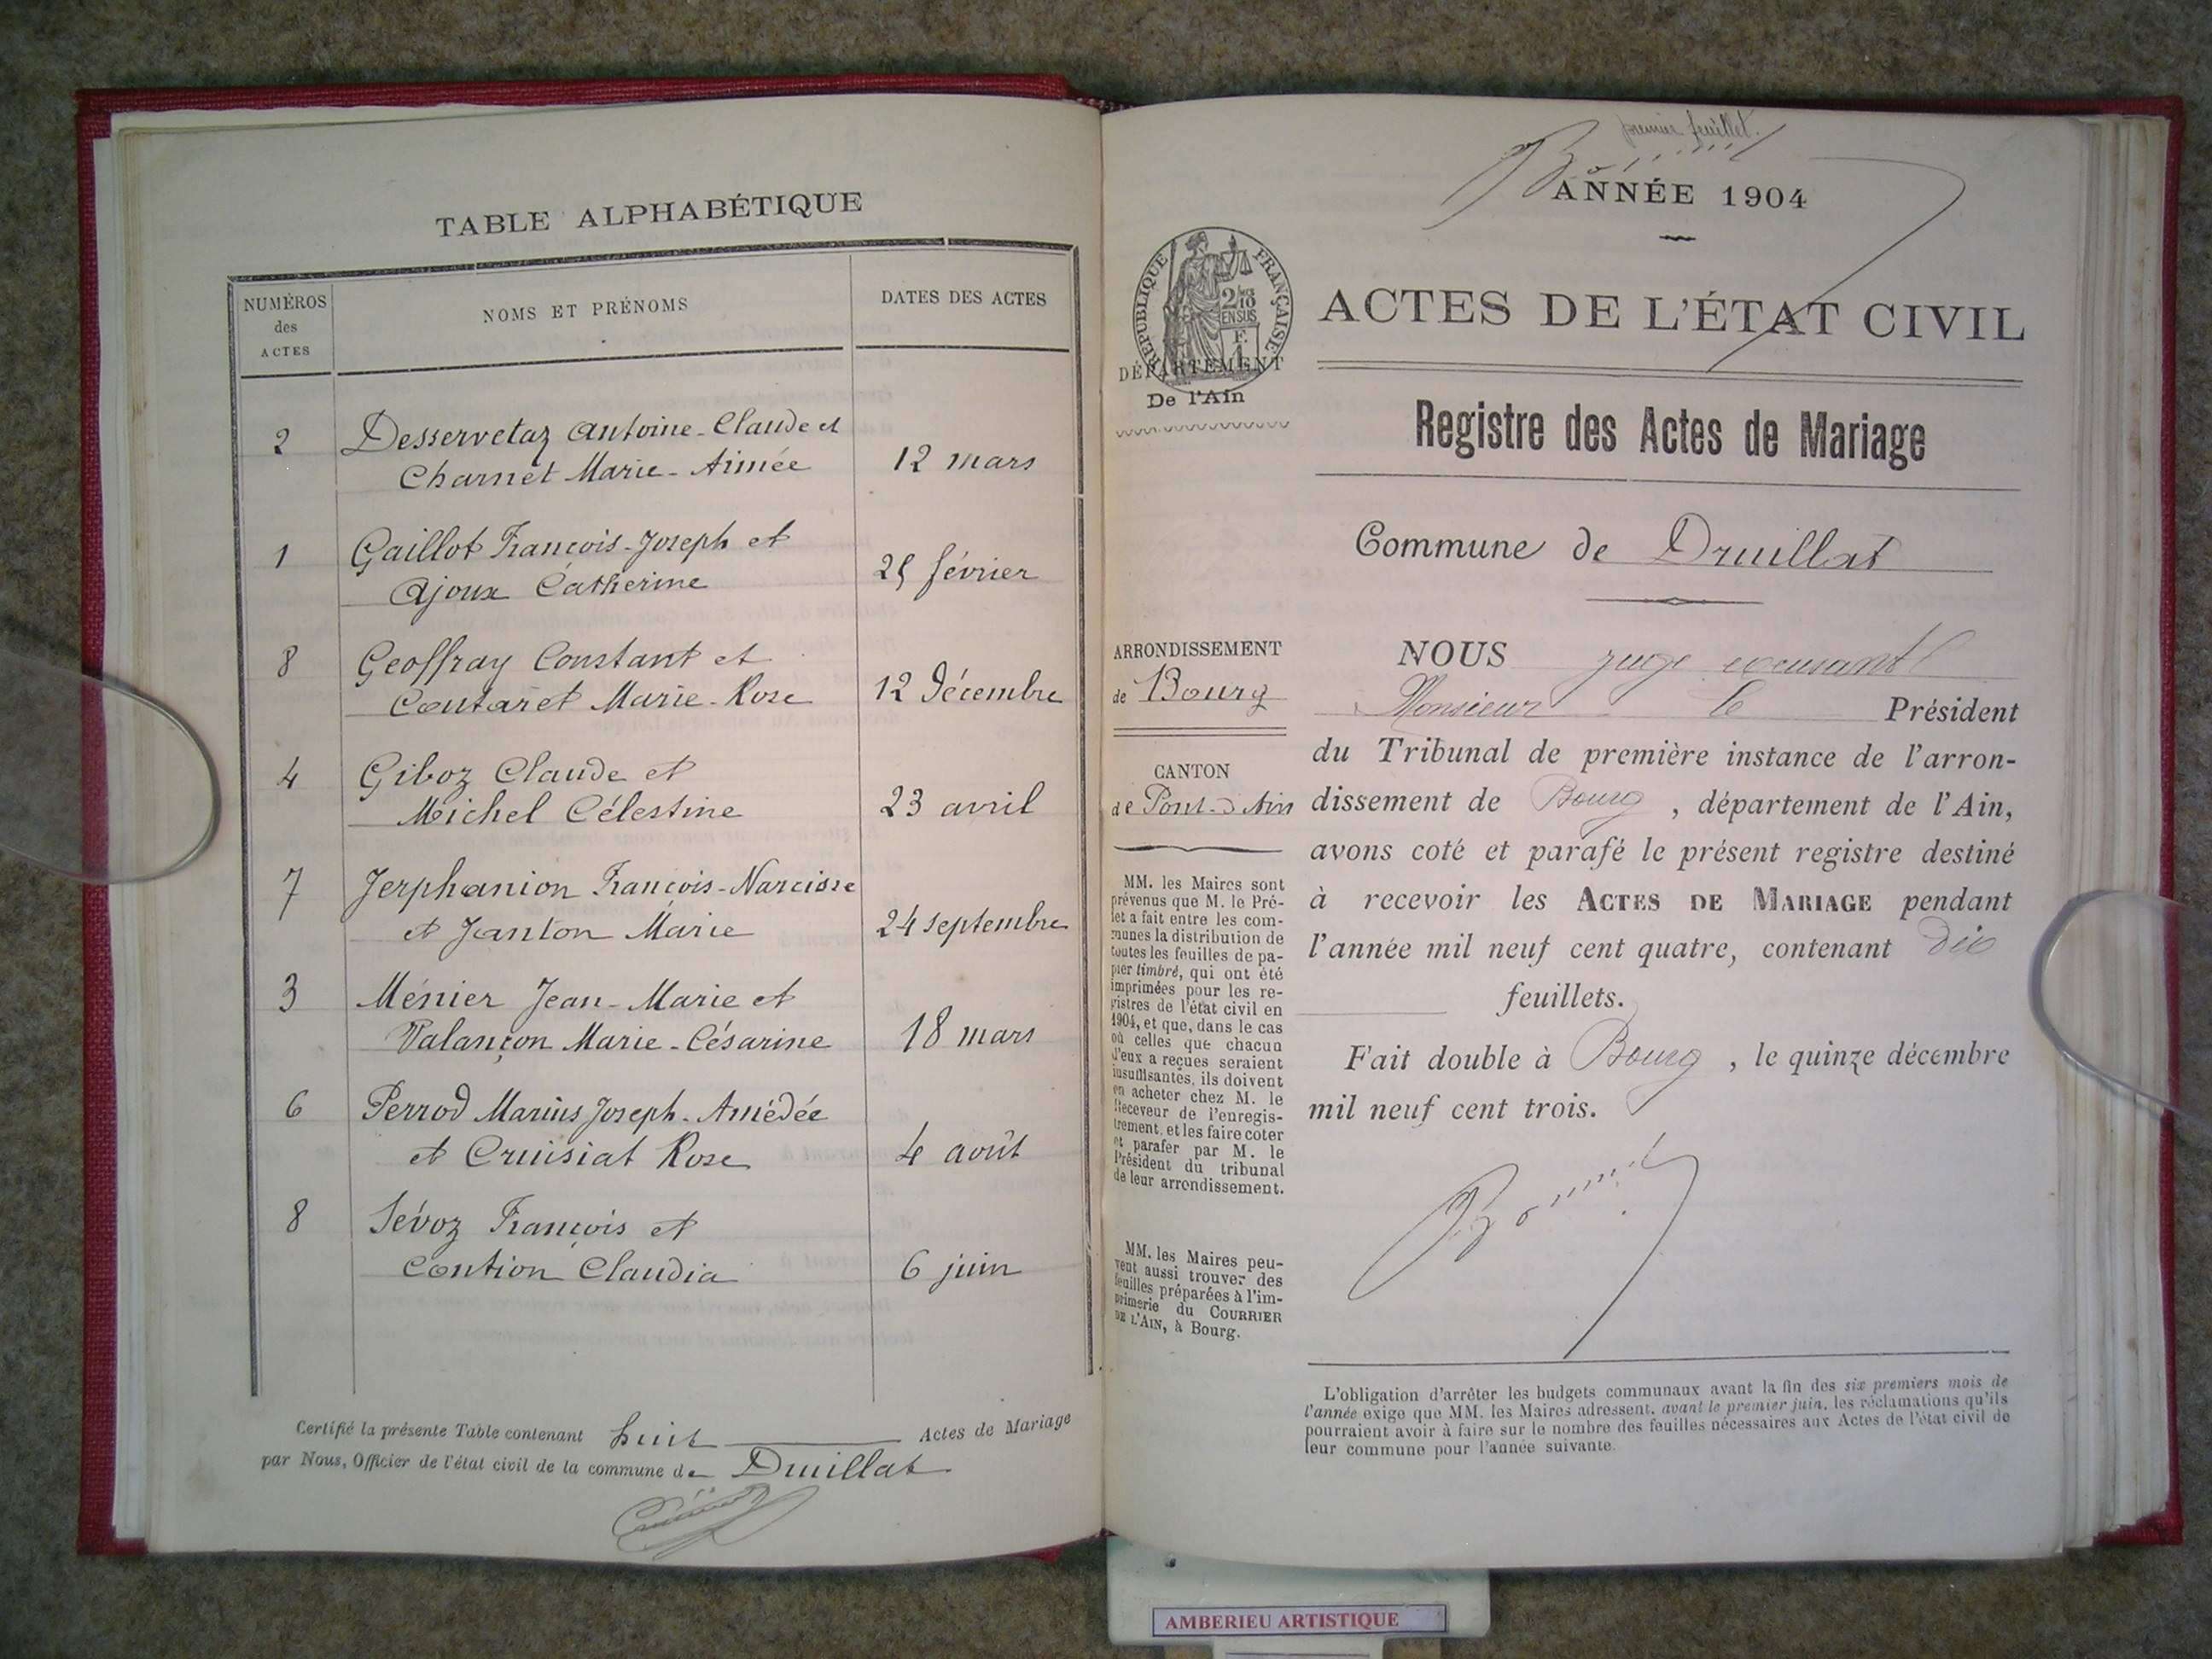 TABLE ALPHABÉTIQUE
NUMÉROS
des
ACTES
NOMS ET PRÉNOMS
DATES DES ACTES
2 Desservetaz Antoine-Claude et
Charnet Marie-Aimée 12 mars
1 Gaillot François-Joseph et
Ajoux Catherine 25 février
8 Geoffray Constant et
Contaret Marie-Rose 12 Décembre
4 Giboz Claude et
Michel Célestine 23 avril
7 Jerphanion François-Narcisse
et Janton Marie 24 septembre
3 Ménier Jean-Marie et
Valançon Marie-Césarine 18 mars
6 Perrod Marius Joseph-Amédée
et Cruisiat Rose 4 août
8 Sévoz François et
Contion Claudia 6 juin
Certifié la présente Table contenant huit Actes de Mariage
par Nous, Officier de l'état civil de la commune de Druillat
premier feuillet.
ANNÉE 1904
RÉPUBLIQUE FRANÇAISE
2/10
EN SUS
DÉPARTEMENT
De l'Ain
ACTES DE L'ÉTAT CIVIL
Registre des Actes de Mariage
Commune de Druillat
ARRONDISSEMENT
de Bourg
CANTON
de Pont-d'Ain
MM. les Maires sont
prévenus que M. le Pré-
fet a fait entre les com-
munes la distribution de
toutes les feuilles de pa-
pier timbré, qui ont été
imprimées pour les re-
gistres de l'état civil en
1904, et que, dans le cas
où celles que chacun
d'eux a reçues seraient
insuffisantes, ils doivent
en acheter chez M. le
Receveur de l'enregis-
trement, et les faire coter
et parafer par M. le
Président du tribunal
de leur arrondissement.
MM. les Maires peu-
vent aussi trouver des
feuilles préparées à l'im-
primerie du COURRIER
DE L'AIN, à Bourg.
NOUS juge
Monsieur le Président
du Tribunal de première instance de l'arron-
dissement de Bourg, département de l'Ain,
avons coté et parafé le présent registre destiné
à recevoir les ACTES DE MARIAGE pendant
l'année mil neuf cent quatre, contenant dix
feuillets.
Fait double à Bourg, le quinze décembre
mil neuf cent trois.
L'obligation d'arrêter les budgets communaux avant la fin des six premiers mois de
l'année exige que MM. les Maires adressent, avant le premier juin, les réclamations qu'ils
pourraient avoir à faire sur le nombre des feuilles nécessaires aux Actes de l'état civil de
leur commune pour l'année suivante.
AMBERIEU ARTISTIQUE